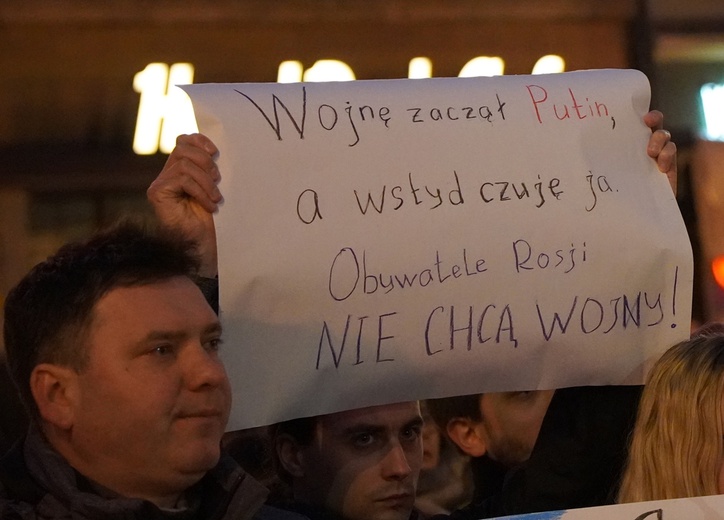 Wojnę zaczął Putin,
a wstyd czuję ja.
Obywatele Rosji
NIE CHCĄ WOJNY!